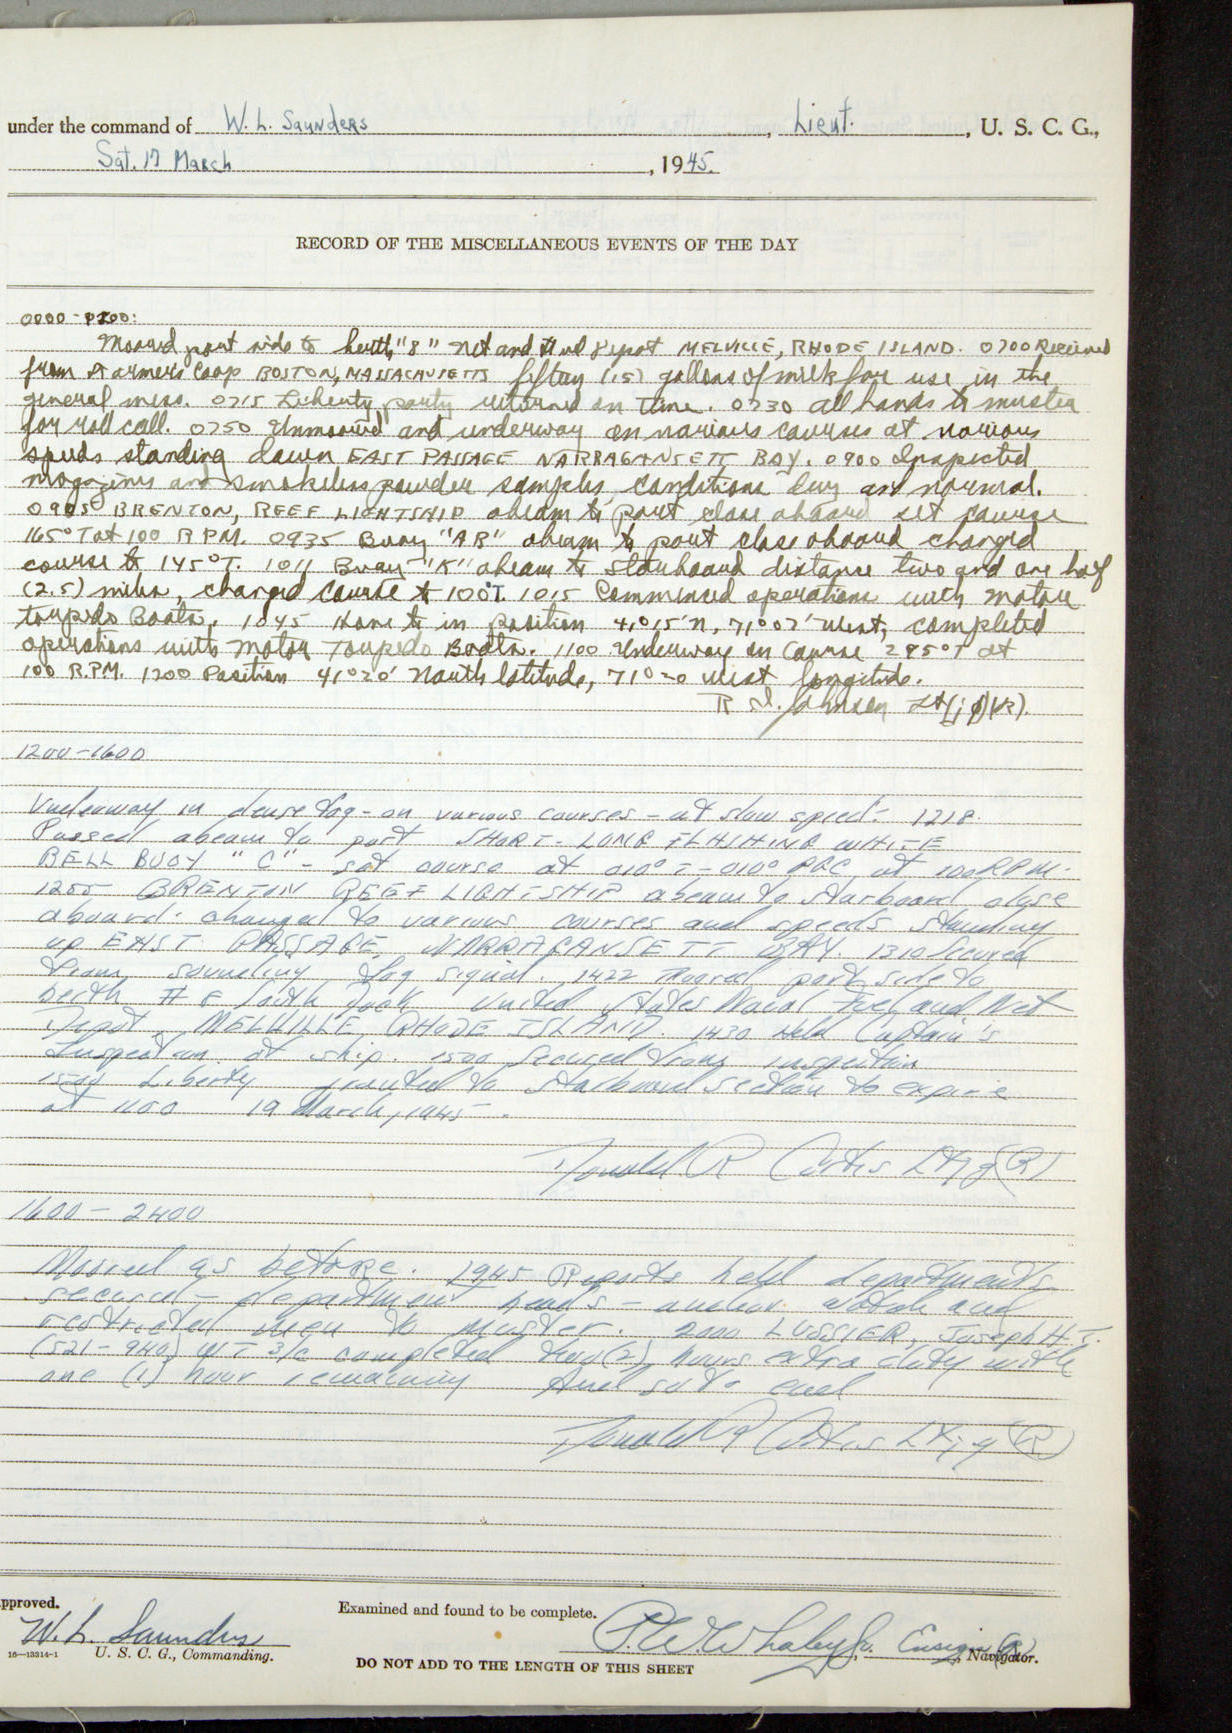 under the command of W. L. Saunders, Lieut., U. S. C. G.,
Sat. 17 March, 1945.
RECORD OF THE MISCELLANEOUS EVENTS OF THE DAY
0000-1200:
Moored port side to berth "8" Net and Fuel Depot MELVILLE, RHODE ISLAND. 0700 Received
from Farmers Coop BOSTON, MASSACHUSETTS fifteen (15) gallons of milk for use in the
general mess. 0715 Liberty party returned on time. 0730 All hands to muster
for roll call. 0750 Unmoored and underway on various courses at various
speeds standing down EAST PASSAGE NARRAGANSETT BAY. 0900 Inspected
magazines and smokeless powder samples, conditions dry and normal.
0905 BRENTON, REEF LIGHTSHIP abeam to port close aboard set course
165°T at 100 R.P.M. 0935 Buoy "AB" abeam to port close aboard changed
course to 145°T. 1011 Buoy "K" abeam to starboard distance two and one half
(2.5) miles, changed course to 100°T. 1015 Commenced operations with motor
torpedo Boats. 1045 Hove to in position 41°15'N, 71°02' West, completed
operations with Motor Torpedo Boats. 1100 Underway on Course 295°T at
100 R.P.M. 1200 Position 41°20' North latitude, 71°20 west longitude.
R Johnson Lt(jg)(R).
1200-1600
Underway in dense fog - on various courses - at slow speed. 1218
Passed abeam to port SHORT-LONG FLASHING WHITE
BELL BUOY "C" - set course at 010° T - 010° PGC at 100 RPM.
1255 BRENTON REEF LIGHTSHIP abeam to starboard close
aboard. changed to various courses and speeds standing
up EAST PASSAGE, NARRAGANSETT BAY. 1310 Secured
from sounding fog signal. 1422 Moored port side to
berth # 8 South Dock United States Naval Fuel and Net
Depot, MELVILLE, RHODE ISLAND. 1430 Held Captain's
Inspection of ship. 1500 Secured from inspection
1500 Liberty granted to starboard section to expire
at 1100 19 March, 1945.
Donald R Curtis Ltjg (R)
1600 - 2400
Moored as before. 1945 Reports held departments
secured - department heads - anchor watch and
restricted men to muster. 2000 LUSSIER, Joseph H.T.
(521-940) MT 3/c completed two (2) hours extra duty with
one (1) hour remaining
Donald R Curtis Ltjg (R)
pproved.
W. L. Saunders
U. S. C. G., Commanding.
16—13314-1
Examined and found to be complete.
P.W. Whaley Jr. Ensign (R), Navigator.
DO NOT ADD TO THE LENGTH OF THIS SHEET